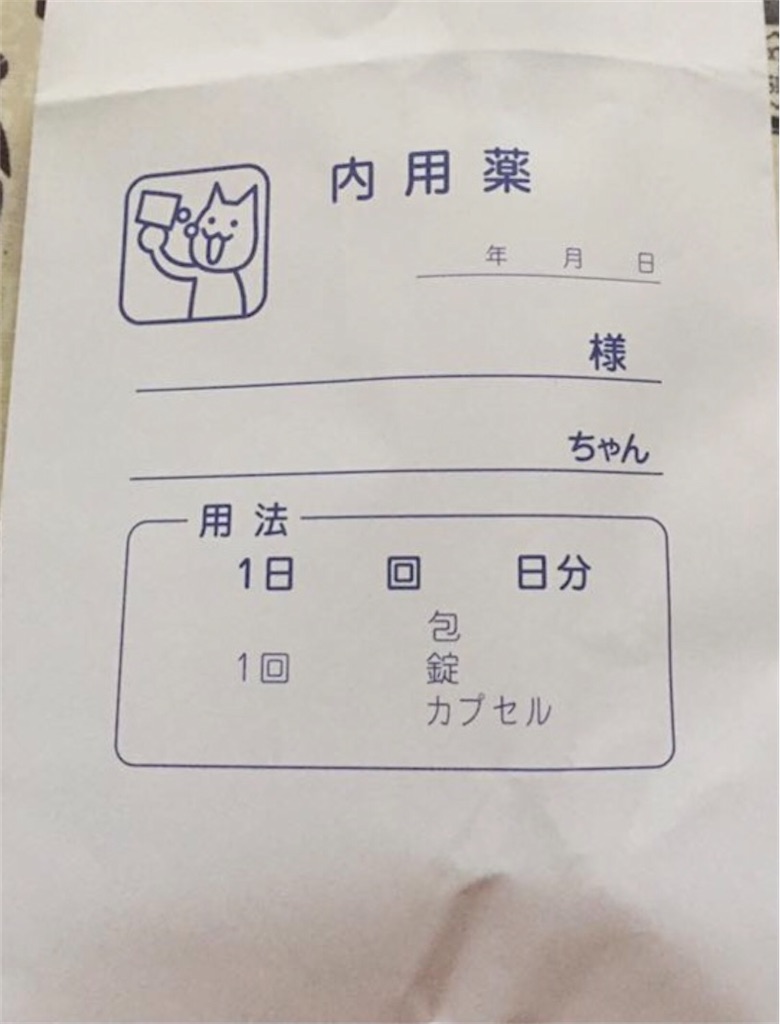 内用薬
年 月 日
様
ちゃん
用法
1日 回 日分
包
1回 錠
カプセル